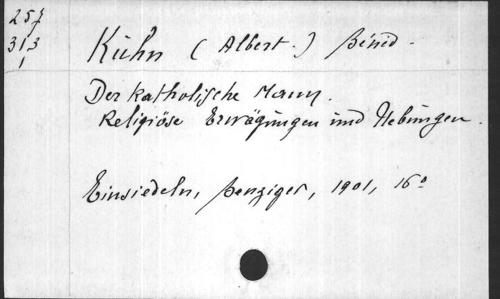 257
313
1
Kuhn (Albert.) Bénéd.
Der katholische Mann.
Religiöse Erwägungen und Uebungen.
Einsiedeln, Benziger, 1901, 16°